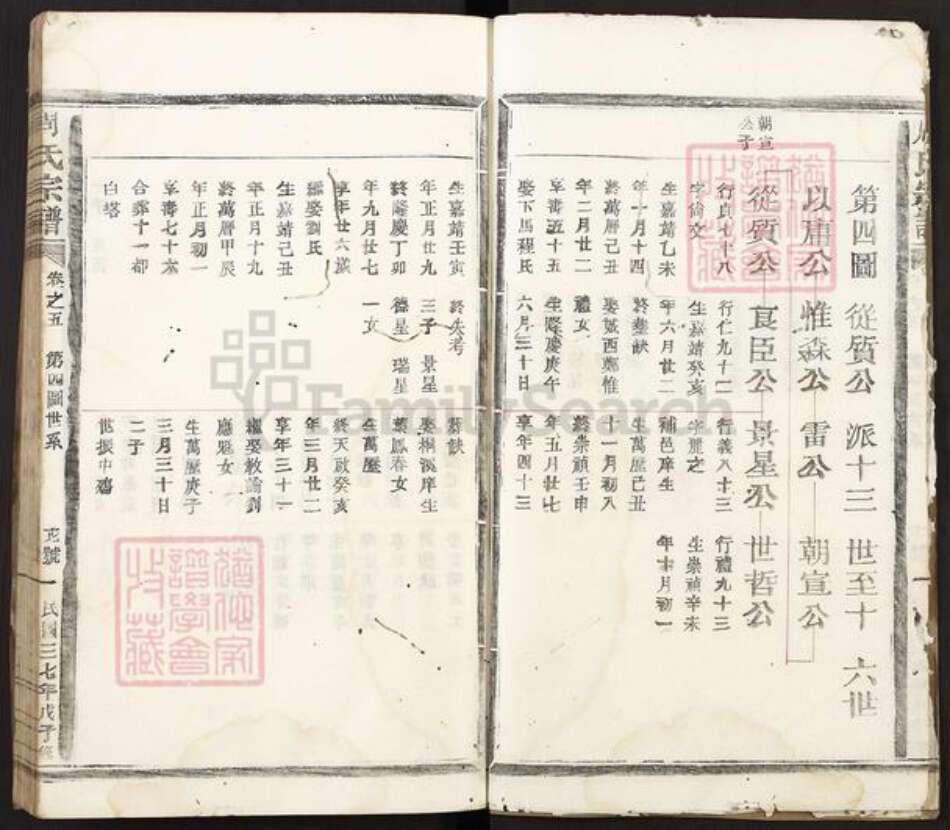 第四圖 從質公 派十三 世至十 六世
以庸公 惟森公 雷公 朝宣公
朝宣
公子
從質公 良臣公 景星公 世哲公
行貞七十八
字尚文
生嘉靖乙未
年一月十四
終萬曆己丑
年二月廿二
享壽五十五
娶下馬程氏
行仁九十二
生嘉靖癸亥
年六月廿二
終塟缺
娶城西鄭惟
禮女
生隆慶庚午
六月三十日
行義八十三
字麗之
補邑庠生
生萬歷己丑
十一月初八
終崇禎壬申
年五月廿七
享年四十三
行禮九十三
生崇禎辛未
年十月初一
生嘉靖壬寅
年正月廿九
終隆慶丁卯
年九月廿七
享年廿六歲
繼娶劉氏
生嘉靖己丑
年正月十九
終萬曆甲辰
年正月初一
享壽七十六
合葬十一都
白塔
終失考
三子 景星
德星 瑞星
一女
塟缺
娶桐溪庠生
葉鳳春女
生萬歷
終天啟癸亥
年三月廿二
享年三十一
繼娶教諭劉
應魁女
生萬歷庚子
三月三十日
二子
世振中殤
周氏宗譜 卷之五 第四圖世系 民國三七年戊子修
FamilySearch